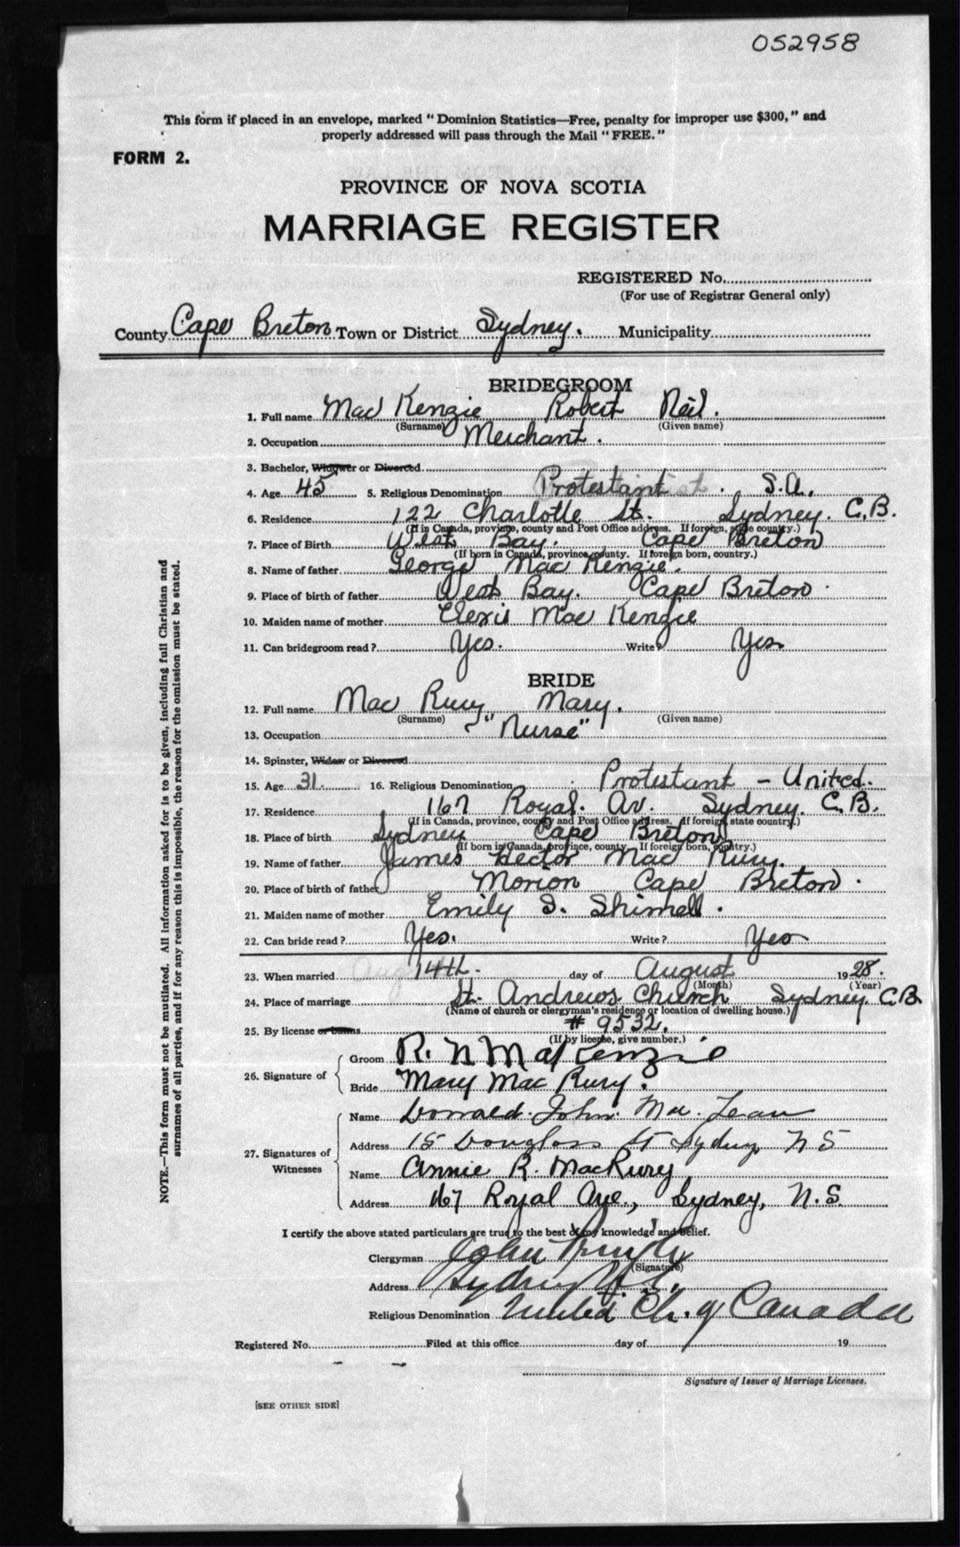 052958
This form if placed in an envelope, marked "Dominion Statistics—Free, penalty for improper use $300," and
properly addressed will pass through the Mail "FREE."
FORM 2.
PROVINCE OF NOVA SCOTIA
MARRIAGE REGISTER
REGISTERED No.
(For use of Registrar General only)
County Cape Breton Town or District Sydney. Municipality
BRIDEGROOM
1. Full name MacKenzie Robert Neil.
(Surname) (Given name)
2. Occupation Merchant.
3. Bachelor, Widower or Divorced
4. Age 45 5. Religious Denomination Protestant. S.A.
6. Residence 122 Charlotte St. Sydney. C.B.
(If in Canada, province, county and Post Office address. If foreign, state country.)
7. Place of Birth West Bay. Cape Breton
(If born in Canada, province, county. If foreign born, country.)
8. Name of father George MacKenzie.
9. Place of birth of father West Bay. Cape Breton.
10. Maiden name of mother MacKenzie
11. Can bridegroom read? Yes. Write? Yes
BRIDE
12. Full name MacRury Mary.
(Surname) (Given name)
13. Occupation "Nurse"
14. Spinster, Widow or Divorced
15. Age 31. 16. Religious Denomination Protestant - United.
17. Residence 167 Royal. Av. Sydney. C.B.
(If in Canada, province, county and Post Office address. If foreign, state country.)
18. Place of birth Sydney Cape Breton
(If born in Canada, province, county. If foreign born, country.)
19. Name of father James Hector MacRury.
20. Place of birth of father Morion Cape Breton.
21. Maiden name of mother Emily S. Shimell.
22. Can bride read? Yes. Write? Yes
23. When married 14th. day of August 1928.
(Month) (Year)
24. Place of marriage St. Andrews Church Sydney C.B.
(Name of church or clergyman's residence or location of dwelling house.)
25. By license or banns # 9532.
(If by license, give number.)
26. Signature of
Groom R. N MacKenzie
Bride Mary MacRury.
27. Signatures of Witnesses
Name Donald John MacLean
Address 15 Douglass St Sydney N S
Name Annie R. MacRury
Address 167 Royal Ave., Sydney, N.S.
I certify the above stated particulars are true to the best of my knowledge and belief.
Clergyman John
(Signature)
Address Sydney N.S.
Religious Denomination United Ch. of Canada
Registered No. Filed at this office day of 19
Signature of Issuer of Marriage Licenses.
[SEE OTHER SIDE]
NOTE.—This form must not be mutilated. All information asked for is to be given, including full Christian and
surnames of all parties, and if for any reason this is impossible, the reason for the omission must be stated.